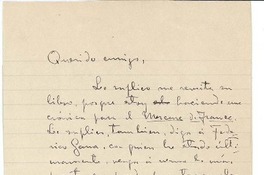 Querido amigo,
Le suplico me remita su
libro, porque estoy haciendo mi
crónica para el Mercure de France.
Le suplico, también, diga a Fede-
rico Gana, con quien he estado últi-
mamente, venga a verme lo más